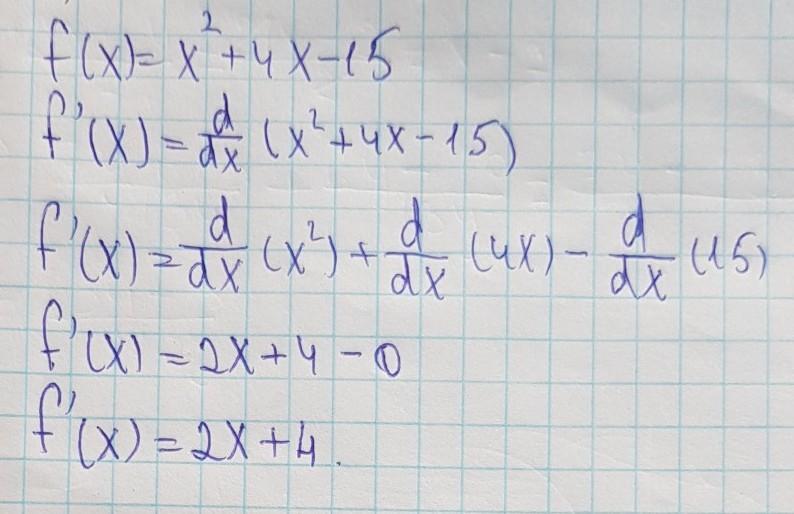 f(x)= x²+4x-15
f'(x)= d/dx (x²+4x-15)
f'(x)= d/dx (x²)+ d/dx (4x)- d/dx (15)
f'(x)=2x+4-0
f'(x)=2x+4.